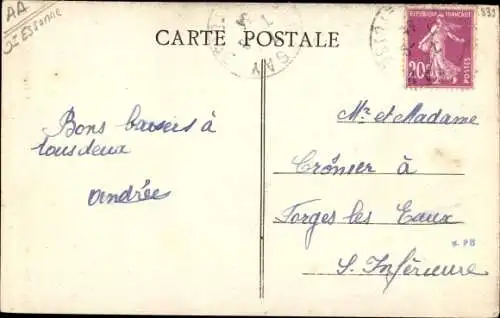 AA
CARTE POSTALE
REPUBLIQUE FRANÇAISE
20c
POSTES
Bons baisers à
tous deux
Andrée
Mr et Madame
Crônier à
Forges les Eaux
S. Inférieure